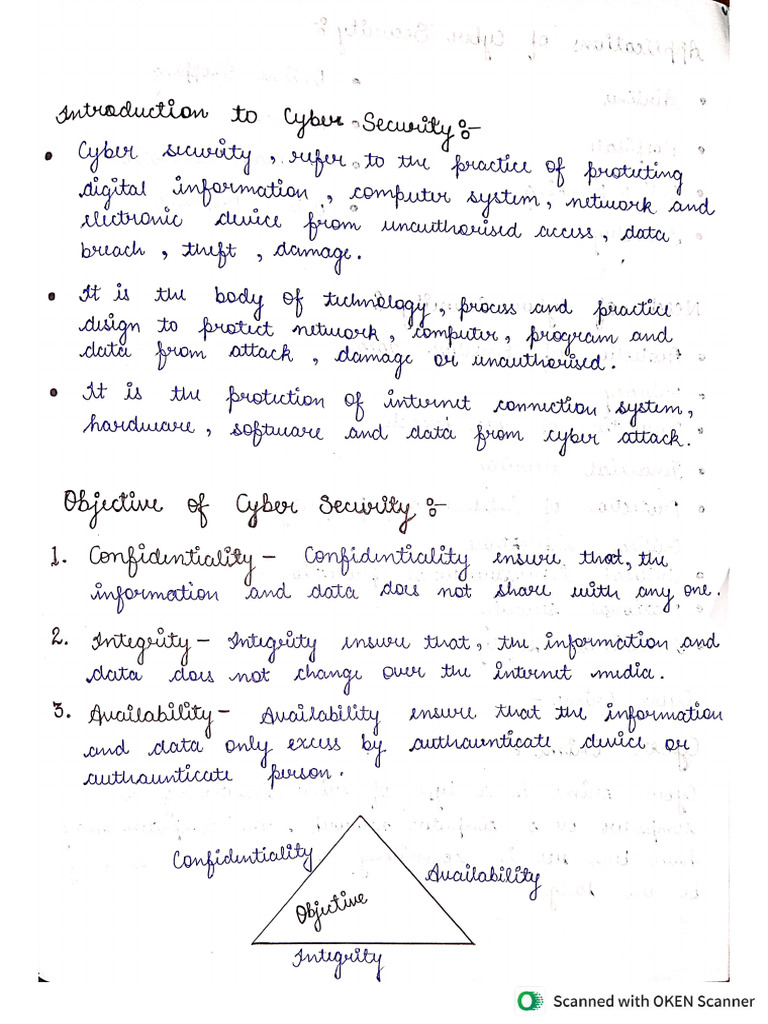 Introduction to Cyber Security :-
• Cyber security, refer to the practice of protecting
digital information, computer system, network and
electronic device from unauthorised access, data
breach, theft, damage.
• It is the body of technology, process and practice
design to protect network, computer, program and
data from attack, damage or unauthorised.
• It is the protection of internet connection system,
hardware, software and data from cyber attack.
Objective of Cyber Security :-
1. Confidentiality - Confidentiality ensure that, the
information and data does not share with any one.
2. Integrity - Integrity ensure that, the information and
data does not change over the internet media.
3. Availability - Availability ensure that the information
and data only excess by authaunticate device or
authaunticate person.
Confidentiality
Availability
Objective
Integrity
Scanned with OKEN Scanner